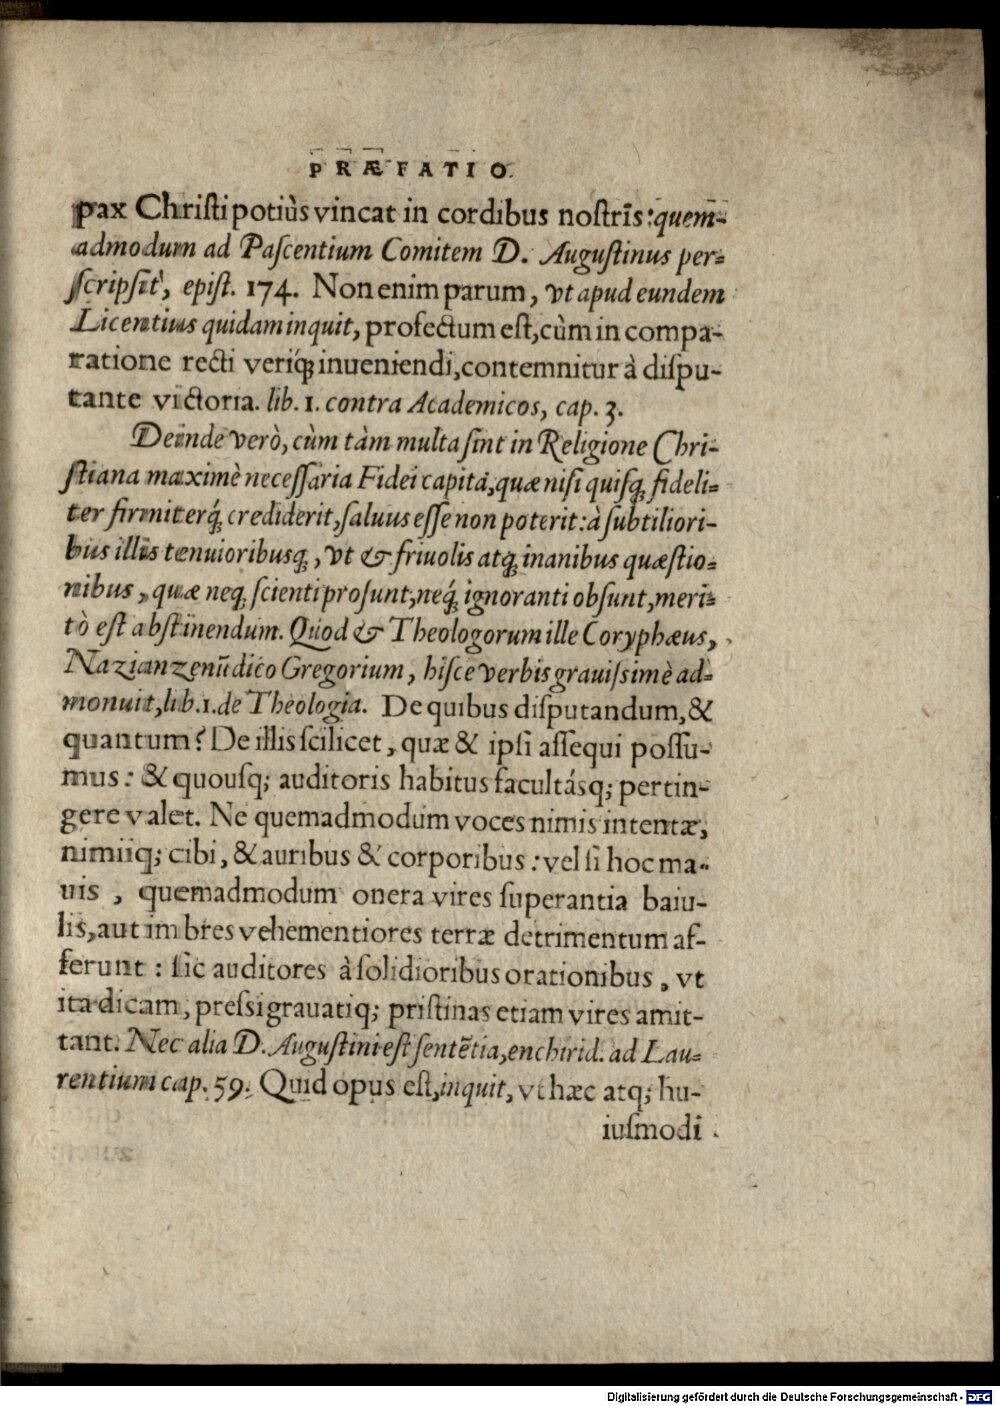 PRÆFATIO.
pax Christi potiùs vincat in cordibus nostris: quem-
admodum ad Pascentium Comitem D. Augustinus per-
scripsit, epist. 174. Non enim parum, vt apud eundem
Licentius quidam inquit, profectum est, cùm in compa-
ratione recti veriq́; inueniendi, contemnitur à dispu-
tante victoria. lib. 1. contra Academicos, cap. 3.
Deinde verò, cùm tàm multa sint in Religione Chri-
stiana maximè necessaria Fidei capita, quæ nisi quisq; fideli-
ter firmiterq́; crediderit, saluus esse non poterit: à subtiliori-
bus illis tenuioribusq;, vt & friuolis atq; inanibus quæstio-
nibus, quæ neq; scienti prosunt, neq́; ignoranti obsunt, meri-
tò est abstinendum. Quod & Theologorum ille Coryphæus,
Nazianzenũ dico Gregorium, hisce verbis grauissimè ad-
monuit, lib. 1. de Theologia. De quibus disputandum, &
quantum? De illis scilicet, quæ & ipsi assequi possu-
mus: & quousq; auditoris habitus facultásq; pertin-
gere valet. Ne quemadmodum voces nimis intentæ,
nimiiq; cibi, & auribus & corporibus: vel si hoc ma-
uis, quemadmodum onera vires superantia baiu-
lis, aut imbres vehementiores terræ detrimentum af-
ferunt: sic auditores à solidioribus orationibus, vt
ita dicam, pressi grauatiq; pristinas etiam vires amit-
tant. Nec alia D. Augustini est sentẽtia, enchirid. ad Lau-
rentium cap. 59. Quid opus est, inquit, vt hæc atq; hu-
iusmodi
Digitalisierung gefördert durch die Deutsche Forschungsgemeinschaft - DFG